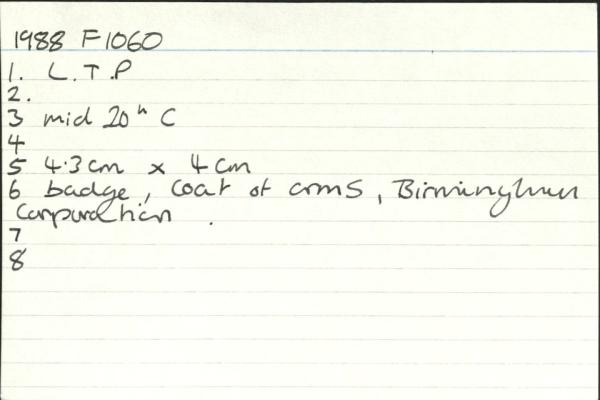 1988 F1060
1. L.T.P
2.
3 mid 20th C
4
5 4.3cm x 4cm
6 badge, coat of arms, Birmingham
Corporation.
7
8